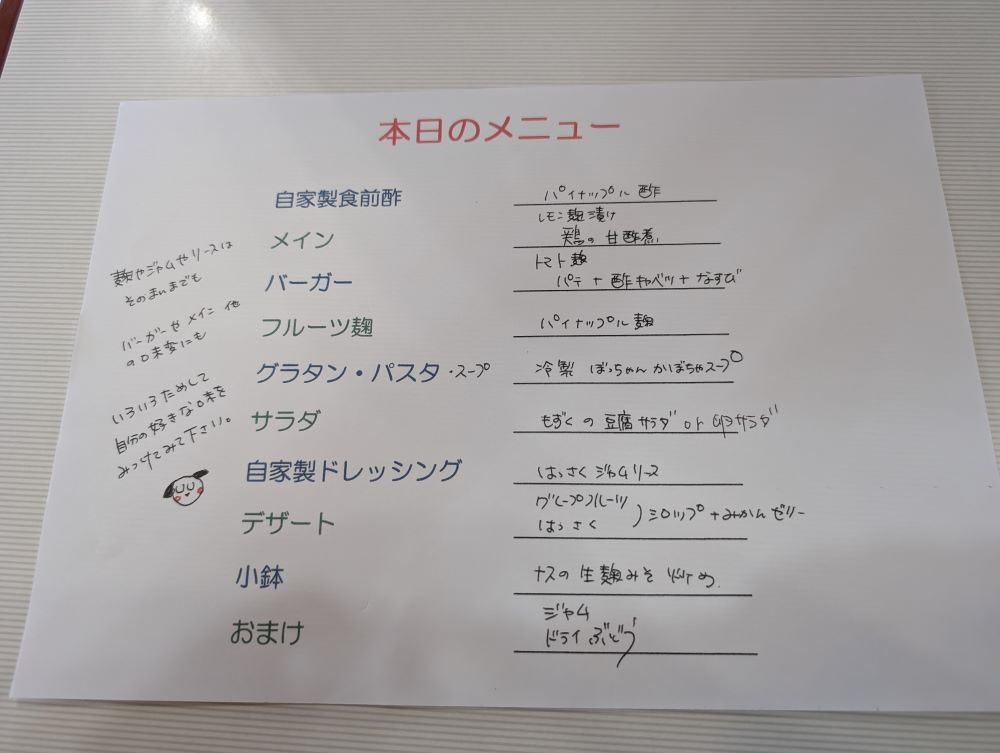 本日のメニュー
自家製食前酢 パイナップル酢
メイン レモン麹漬け
鶏の甘酢煮
バーガー トマト麹
パテ+酢キャベツ+なすび
フルーツ麹 パイナップル麹
グラタン・パスタ・スープ 冷製 ぼっちゃんかぼちゃスープ
サラダ もずくの豆腐サラダ or サラダ
自家製ドレッシング はっさくジャムソース
デザート グレープフルーツ
はっさく )シロップ+みかんゼリー
小鉢 ナスの生麹みそ
おまけ ジャム
ドライぶどう
麹やジャムやソースは
そのままでも
バーガーやメイン 他
の口未変にも
いろいろためして
自分の好きな味を
みつけてみて下さい。